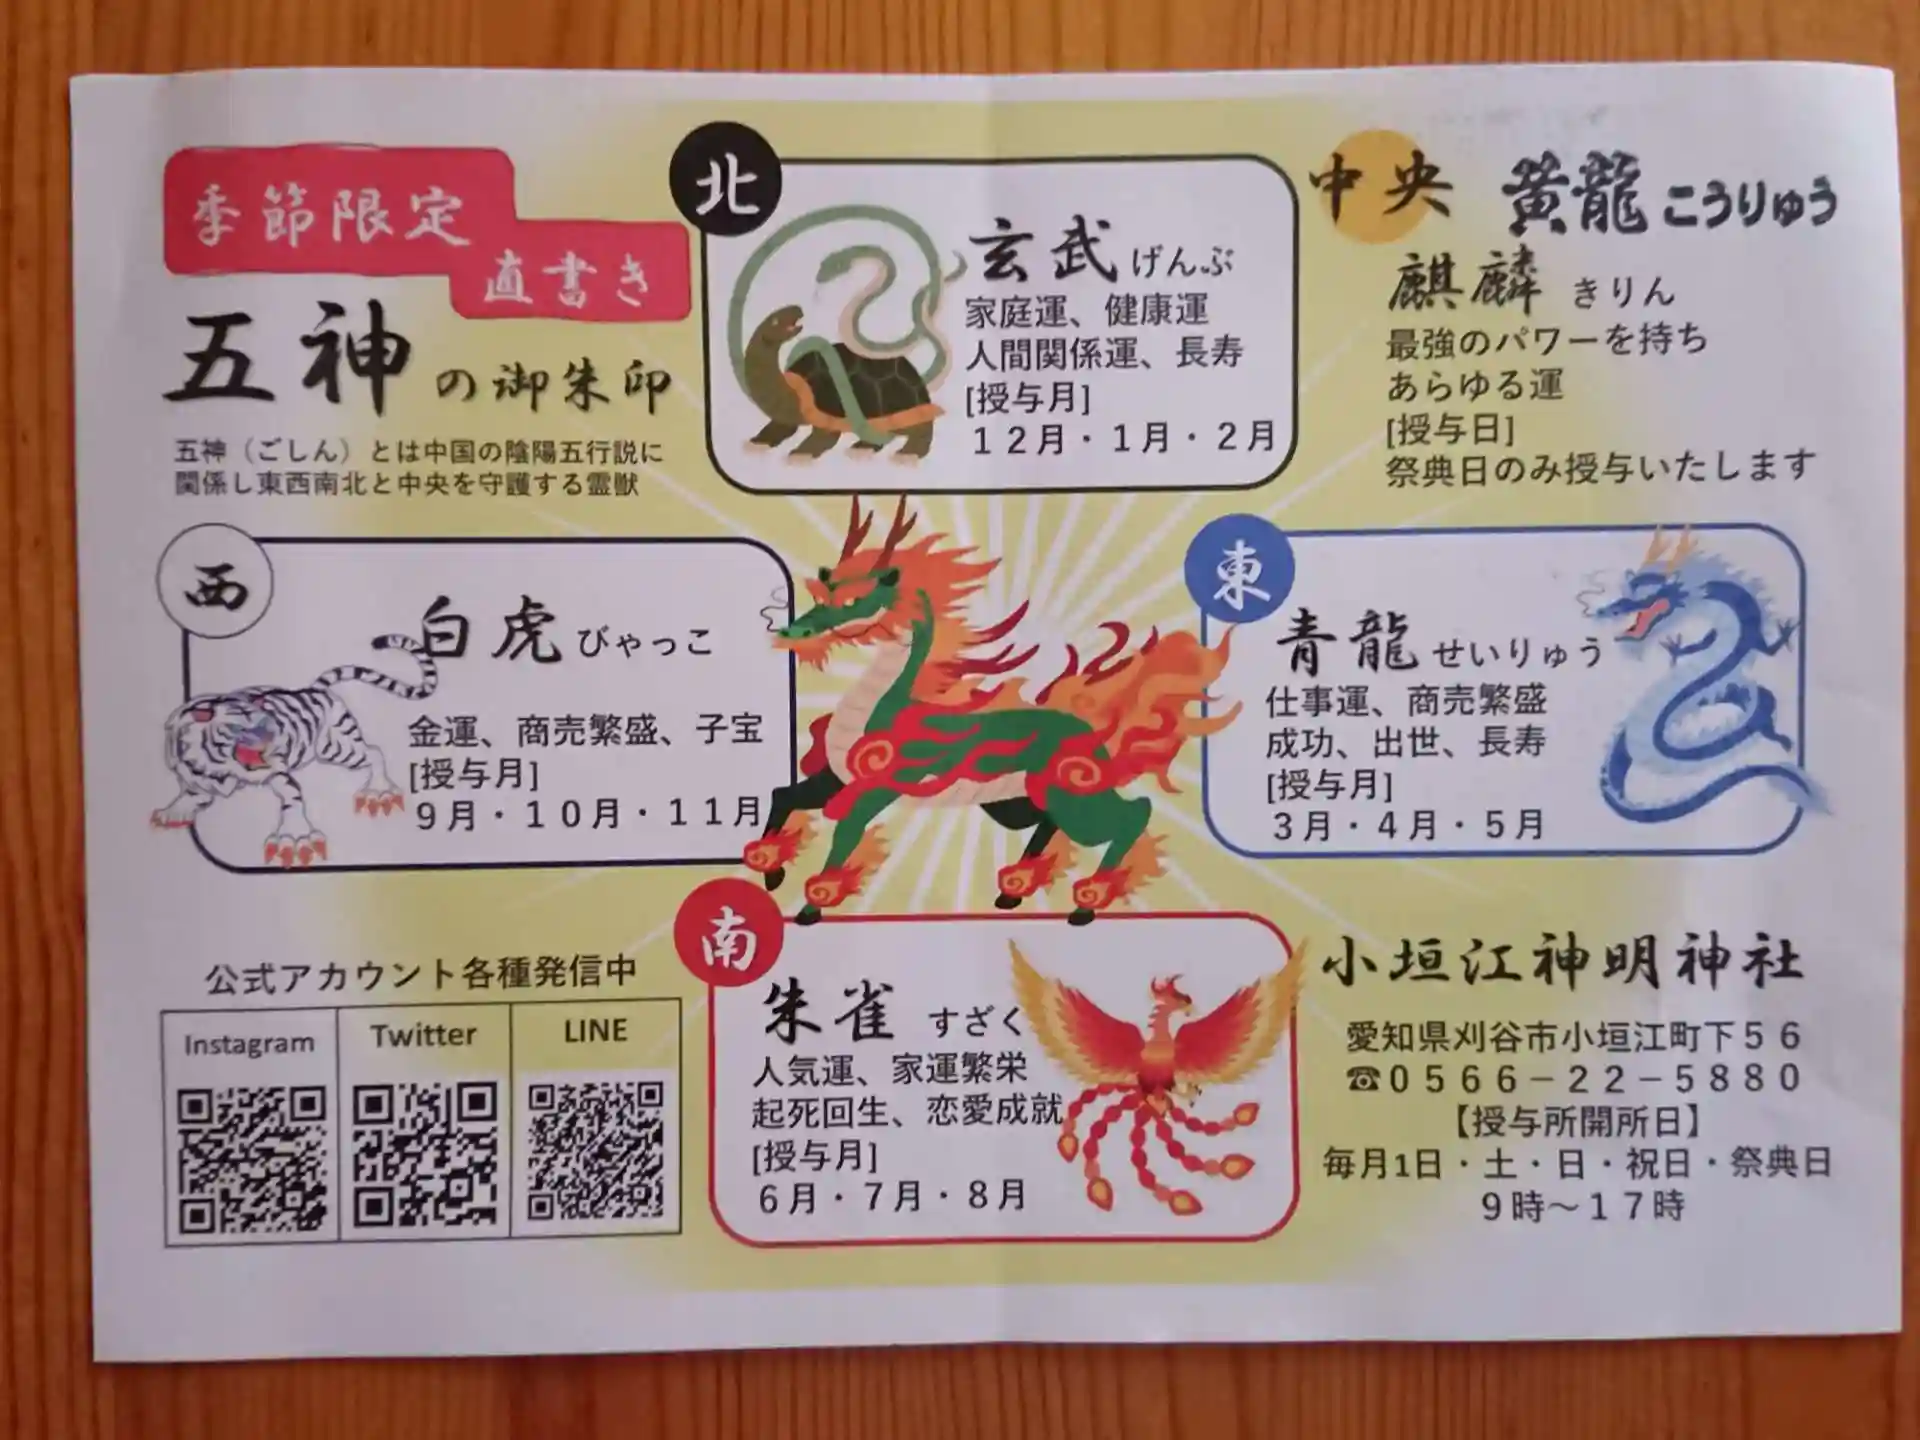 季節限定
直書き
五神の御朱印
五神（ごしん）とは中国の陰陽五行説に
関係し東西南北と中央を守護する霊獣
北
玄武 げんぶ
家庭運、健康運
人間関係運、長寿
[授与月]
１２月・１月・２月
中央 黄龍 こうりゅう
麒麟 きりん
最強のパワーを持ち
あらゆる運
[授与日]
祭典日のみ授与いたします
西
白虎 びゃっこ
金運、商売繁盛、子宝
[授与月]
９月・１０月・１１月
東
青龍 せいりゅう
仕事運、商売繁盛
成功、出世、長寿
[授与月]
３月・４月・５月
南
朱雀 すざく
人気運、家運繁栄
起死回生、恋愛成就
[授与月]
６月・７月・８月
公式アカウント各種発信中
Instagram
Twitter
LINE
小垣江神明神社
愛知県刈谷市小垣江町下５６
☎０５６６－２２－５８８０
【授与所開所日】
毎月1日・土・日・祝日・祭典日
９時～１７時